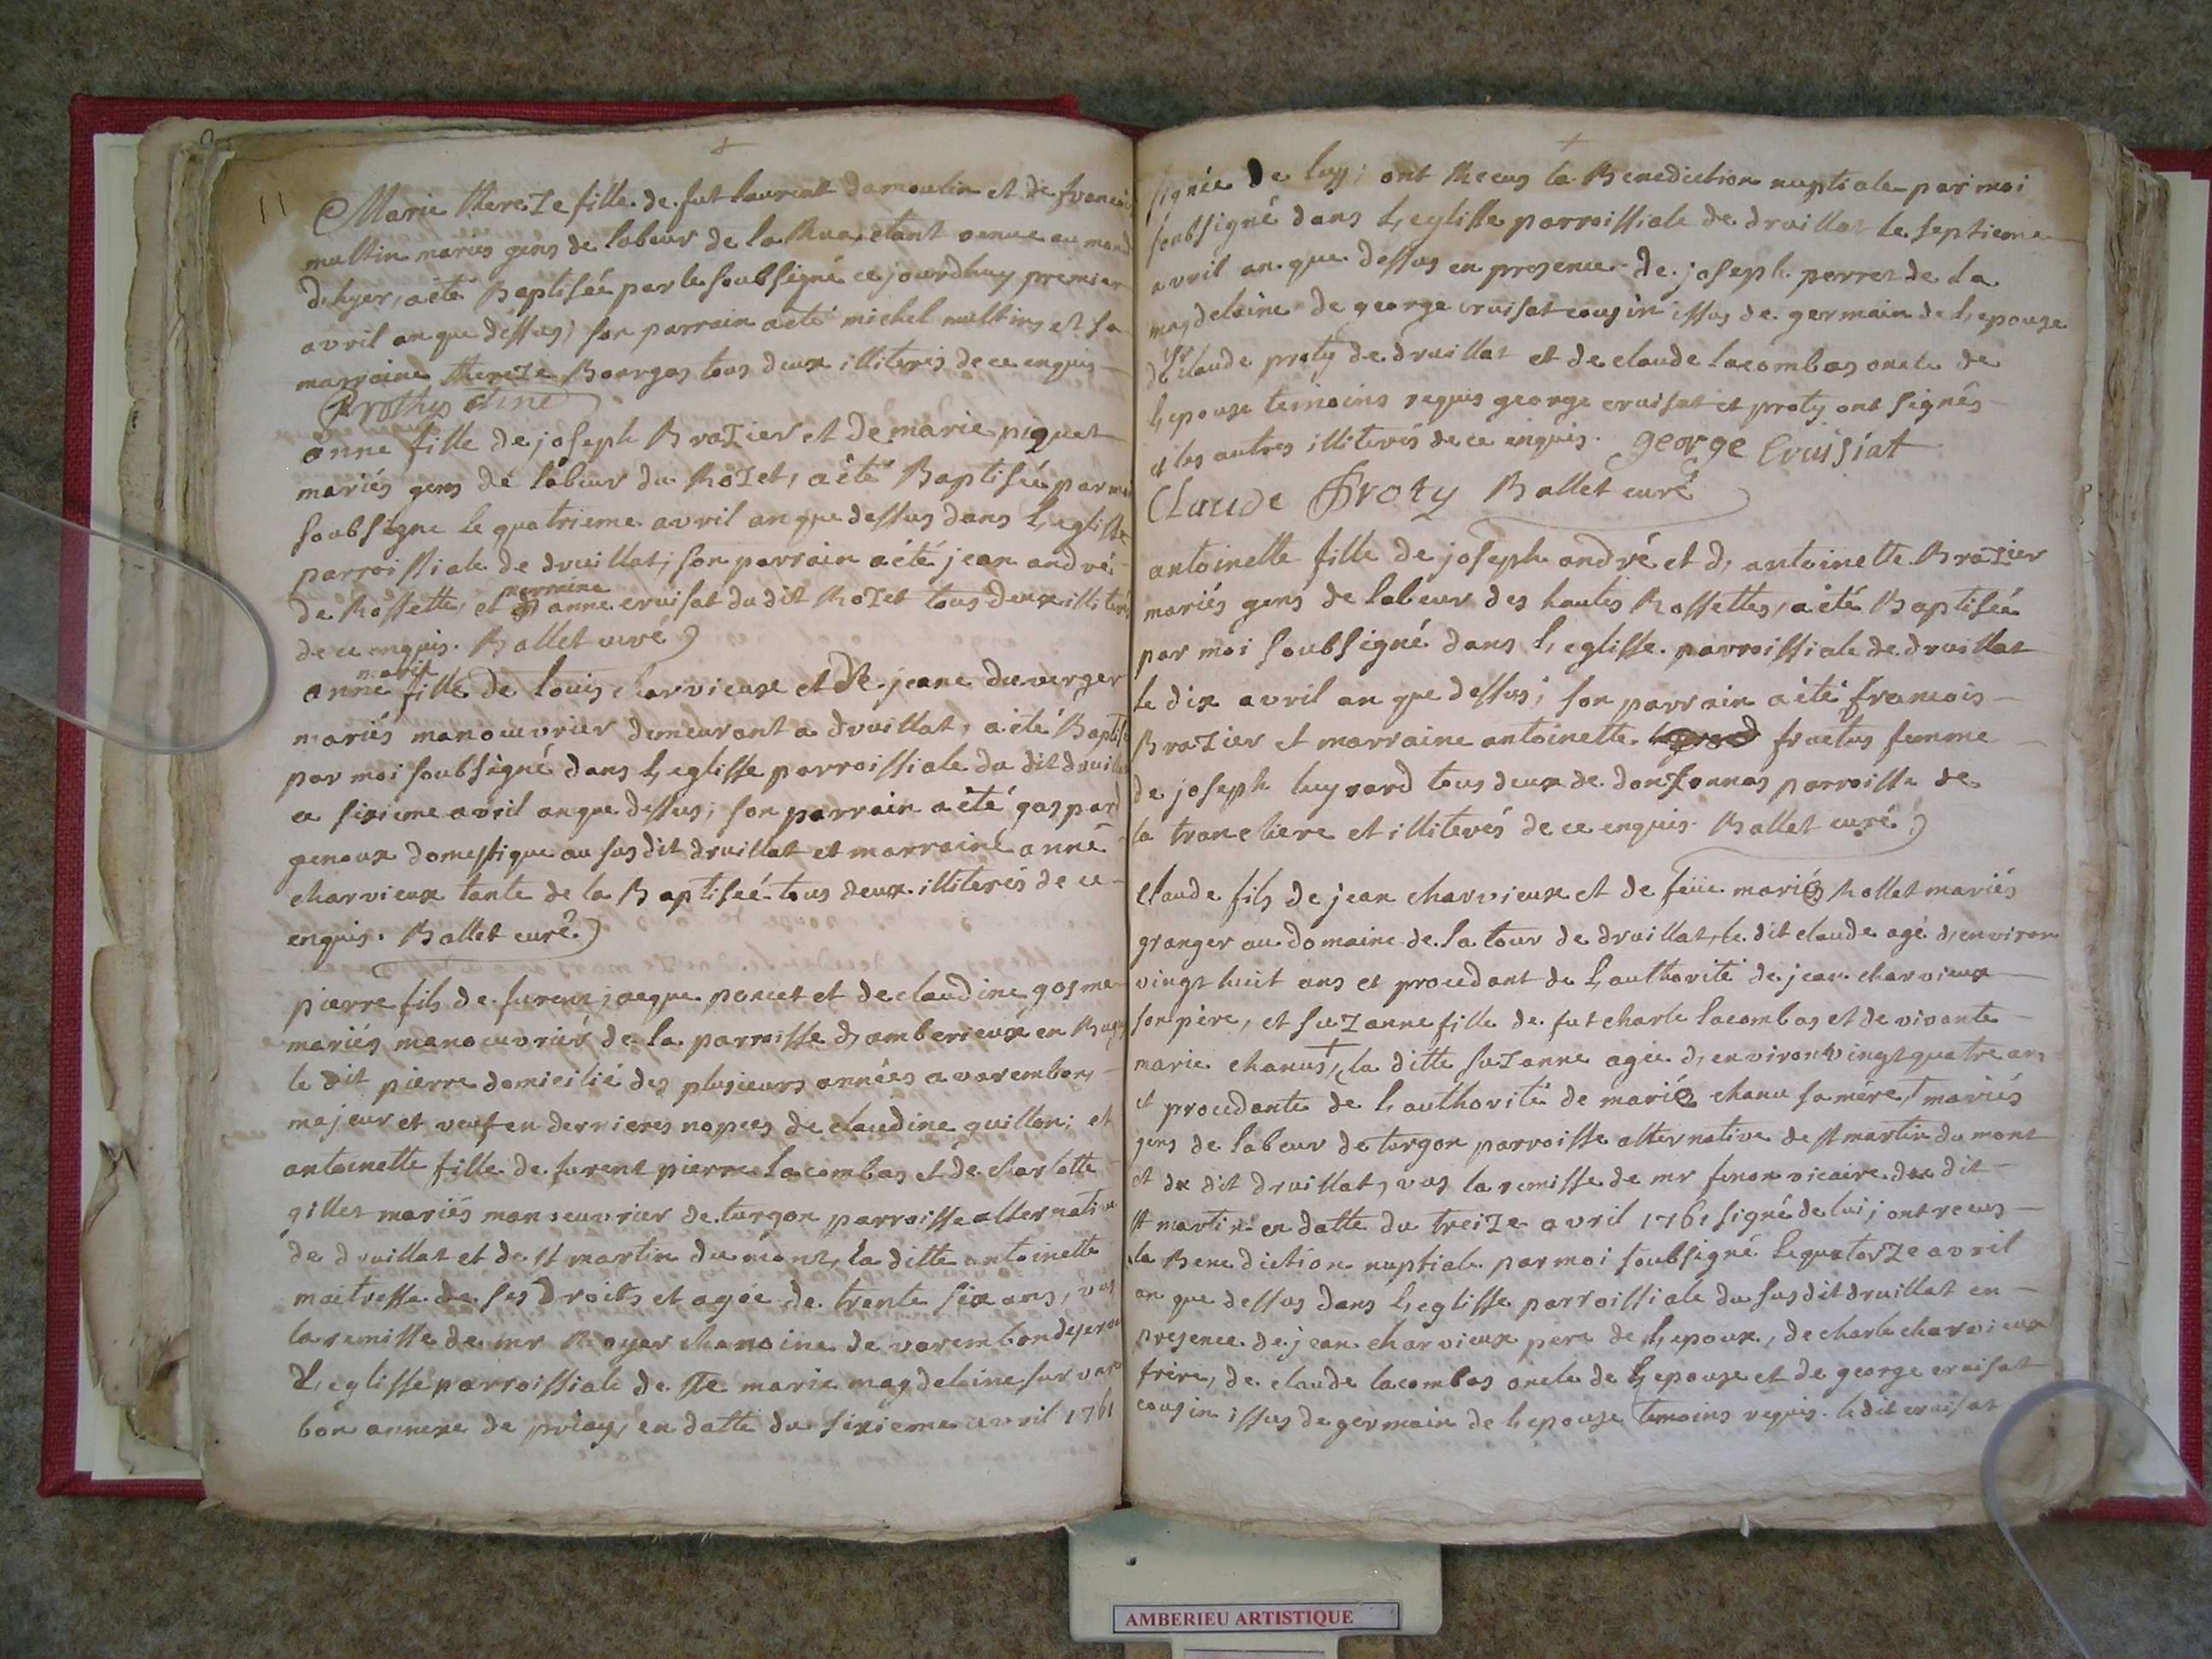 11
Marie thereze fille de fut laurent damoulin et de francois
multin maries gens de labeur de la Rua, etant venue au mond
d,hyer, a eté Baptisée par le soubsigné ce jourdhuy premier
avril an que dessus; son parrain a eté michel multin et sa
marraine thereze Bourgos tous deux illiterés de ce enquis
anne fille de joseph Brazier et de marie piquet
mariés gens de labeur du Rozet, a eté Baptisée par moi
soubsigne le quatrieme avril an que dessus dans l,eglisse
parroissiale de druillat, son parrain a eté jean andré
de Rossette, et marraine anne cruisat du dit Rozet tous deux illiterés
de ce enquis. Ballet curé
anne marie fille de louis charvieux et de jeane duverger
mariés manouvrier demeurant a druillat, a eté Baptisé
par moi soubsigné dans l,eglisse parroissiale du dit druillat
ce sixieme avril an que dessus; son parrain a eté gaspard
genoux domestique au susdit druillat et marraine anne
charvieux tante de la Baptiseé tous deux illiterés de ce
enquis. Ballet curé
pierre fils de furent jacque poncet et de claudine gosme
mariés manouvriér de la parroisse d,amberieux en Bugey
le dit pierre domicilié des plusieurs années a varembon,
majeur et veuf en dernieres nopces de claudine guillon; et
antoinette fille de furent pierre lacombas et de charlotte
gillet mariés manouvrier de turgon parroisse alternative
de druillat et de st martin du mont, la ditte antoinette
maitresse de ses droits et ageé de trente six ans, vus
la remisse de mr Royer chanoine de varembon
l,eglisse parroissiale de ste marie magdeleine sur varem
bon annexe de priay, en datte du sixieme avril 1761
signée de luy; ont Recus la Benediction nuptiale par moi
soubsigné dans l,eglisse parroissiale de druillat le septieme
avril an que dessus en presence de joseph perret de la
magdeleine de george cruisat cousin issus de germain de l,epouse
de sr claude proty de druillat et de claude lacombas oncle de
l,epouse temoins requis george cruisat et proty ont signés
et les autres illiterés de ce enquis. george Cruisiat
Claude Proty Ballet curé
antoinette fille de joseph andré et d, antoinette Brazier
mariés gens de labeur des hautes Rossettes, a eté Baptiseé
par moi soubsigné dans l,eglisse parroissiale de druillat
le dix avril an que dessus; son parrain a eté francois
Brazier et marraine antoinette fructus femme
de joseph luyrard tous deux de donsonnas parroisse de
la tranchere et illiterés de ce enquis. Ballet curé
Claude fils de jean charvieux et de feüe marie Rollet mariés
granger au domaine de la tour de druillat, le dit claude agé d,environ
vingt huit ans et procedant de l,authorité de jean charvieux
son père, et suzanne fille de fut charle lacombas et de vivante
marie chanus, la ditte suzanne agée d,environ vingt quatre ans
et procedante de l,authorité de marie chanu sa mére, mariés
gens de labeur de turgon parroisse alternative de st martin du mont
et du dit druillat, vus la remisse de mr vicaire du dit
st martin en datte du treize avril 1761 signé de lui; ont recus
la Benediction nuptiale par moi soubsigné le quatorze avril
an que dessus dans l,eglisse parroissiale du susdit druillat en
presence de jean charvieux pere de l,epoux, de charle charvieux
frère, de claude lacombas oncle de l,epouse et de george cruisat
cousin issus de germain de l,epouse temoins requis. le dit cruisat
AMBERIEU ARTISTIQUE